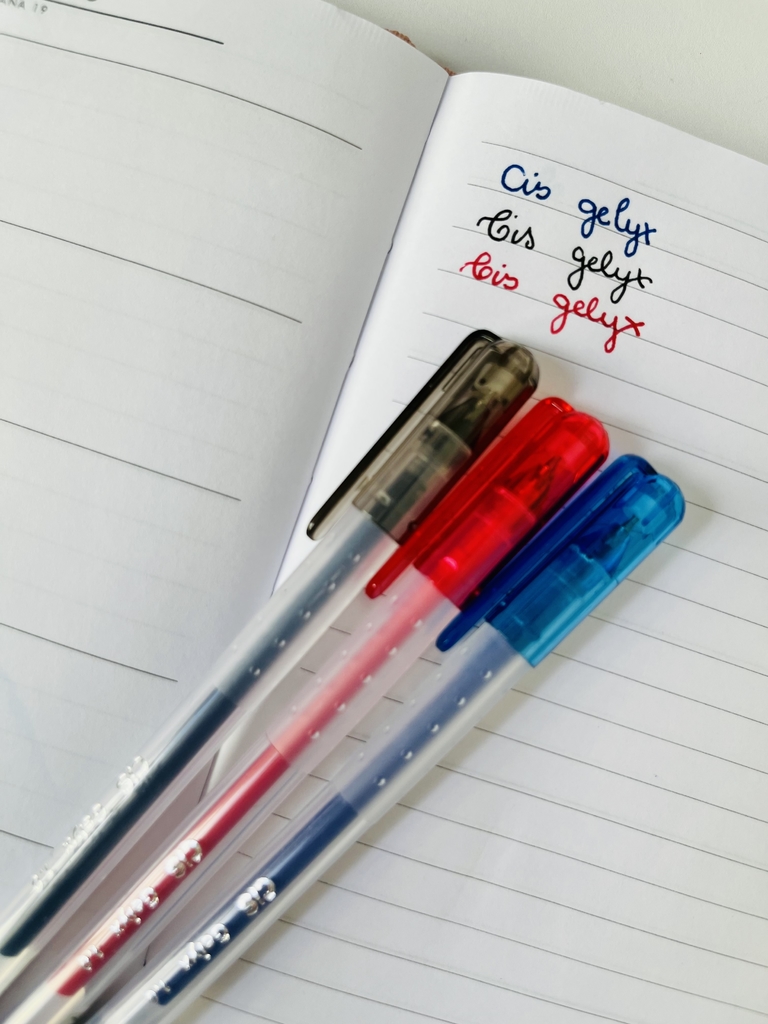 ANA 19
Cis gelyx
Cis gelyx
Cis gelyx
Cis Gelyx 1.0
Cis Gelyx 1.0